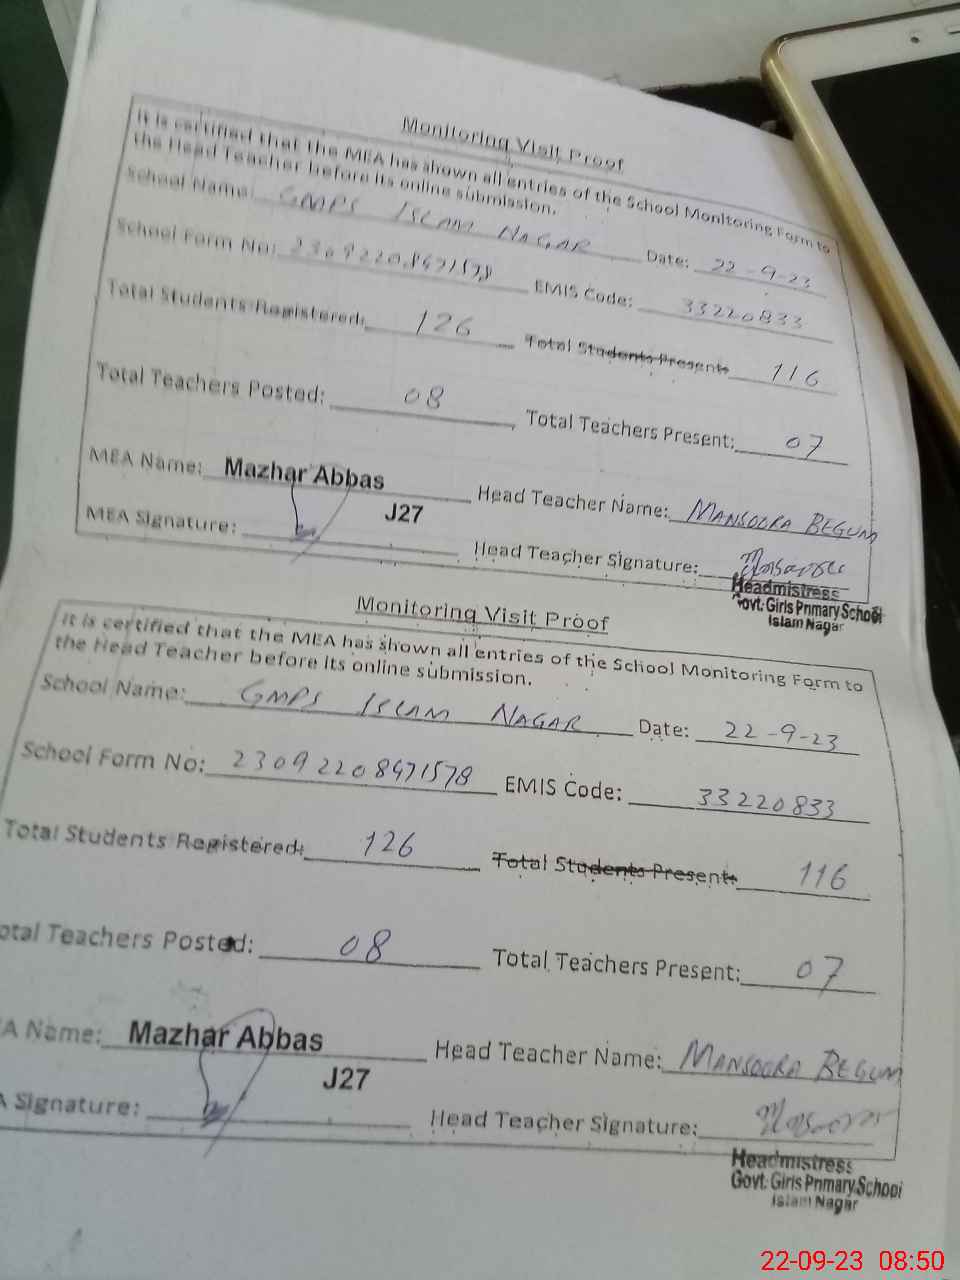 Monitoring Visit Proof
It is certified that the MEA has shown all entries of the School Monitoring Form to
the Head Teacher before its online submission.
School Name: GMPS ISLAM NAGAR Date: 22-9-23
School Form No: 23092208471578 EMIS Code: 33220833
Total Students Registered: 126 Total Students Present: 116
Total Teachers Posted: 08 Total Teachers Present: 07
MEA Name: Mazhar Abbas Head Teacher Name: MANSOORA BEGUM
J27
MEA Signature: Head Teacher Signature:
Headmistress
Govt: Girls Primary School
Islam Nagar
Monitoring Visit Proof
It is certified that the MEA has shown all entries of the School Monitoring Form to
the Head Teacher before its online submission.
School Name: GMPS ISLAM NAGAR Date: 22-9-23
School Form No: 23092208471578 EMIS Code: 33220833
Total Students Registered: 126 Total Students Present: 116
otal Teachers Posted: 08 Total Teachers Present: 07
A Name: Mazhar Abbas Head Teacher Name: MANSOORA BEGUM
J27
A Signature: Head Teacher Signature:
Headmistress
Govt: Girls Primary School
Islam Nagar
22-09-23 08:50